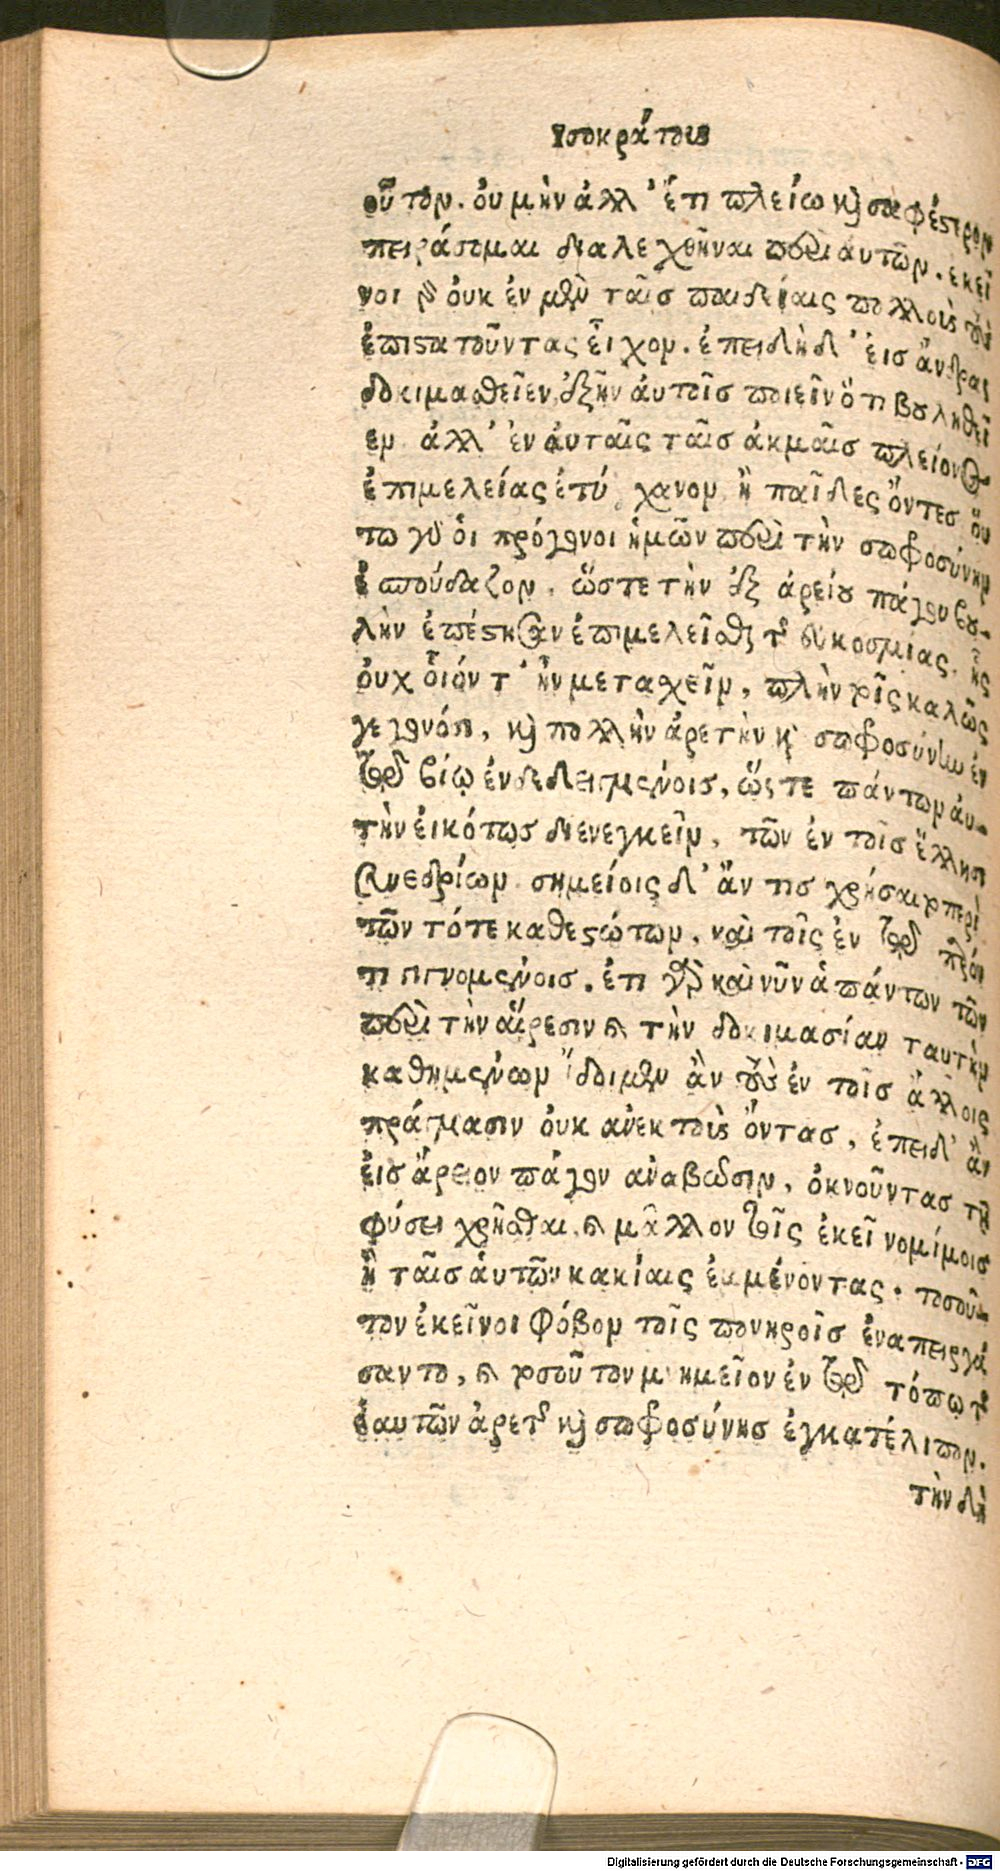 Ισοκράτους
οῦτον. ὀυ μὴν ἀλλ' ἔτι πλείω καὶ σαφέστερον
πειράσομαι διαλεχθῆναι περὶ ἀυτῶν. ἐκεῖ
νοι γὰρ ὀυκ ἐν μὲν ταῖσ παιδείαις πολλοὺς τοὺσ
ἐπιστατοῦντας εἶχον. ἐπειδὴ δ' ἐισ ἄνδρας
δοκιμασθεῖεν, ἐξῆν ἀυτοῖσ ποιεῖν ὅτι βουληθεῖ
εν ἀλλ' ἐν ἀυταῖς ταῖσ ἀκμαῖσ πλείονος
ἐπιμελείας ἐτύγχανον ἢ παῖδες ὄντεσ ὅυ
τω γὰρ ὁι πρόγονοι ἡμῶν περὶ τὴν σωφροσύνην
ἐσπούδαζον. ὥστε τὴν ἐξ ἀρείου πάγου βου-
λὴν ἐπέστησαν ἐπιμελεῖσθαι τῆς ἐυκοσμίας. ἧς
ὀυχ οἷόν τ' ἦν μετασχεῖν, πλὴν τοῖς καλῶς
γεγονόσι, καὶ πολλὴν ἀρετὴν καὶ σωφροσύνην ἐν
τῷ βίῳ ἐνδεδειγμένοισ, ὥςτε πάντων ἀυ-
τὴν ἐικότωσ διενεγκεῖν, τῶν ἐν τοῖσ ἕλλησι
συνεδρίων. σημείοις δ' ἄν τισ χρήσαιτο περὶ
τῶν τότε καθεστώτων, καὶ τοῖς ἐν τῷ παρόν
τι γιγνομένοισ. ἔτι γὰρ καὶ νῦν ἁπάντων τῶν
περὶ τὴν ἅιρεσιν καὶ τὴν δοκιμασίαν ταυτὴν
καθημένων ἴδοιμεν ἂν τοὺσ ἐν τοῖσ ἄλλοις
πράγμασιν ὀυκ ἀνεκτοὺς ὄντασ, ἐπειδ' ἂν
ἐισ ἄρειον πάγον ἀναβῶσιν, ὀκνοῦντασ τῇ
φύσει χρῆσθαι, καὶ μᾶλλον τοῖς ἐκεῖ νομίμοισ
ἢ ταῖσ ἁυτῶν κακίαις ἐμμένοντας. τοσοῦ-
τον ἐκεῖνοι φόβον τοῖς πονηροῖσ ἐναπειργά
σαντο, καὶ τοσοῦτον μνημεῖον ἐν τῷ τόπῳ τῆς
ἑαυτῶν ἀρετῆς καὶ σωφροσύνησ ἐγκατέλιπον.
τὴν δὴ
Digitalisierung gefördert durch die Deutsche Forschungsgemeinschaft - DFG